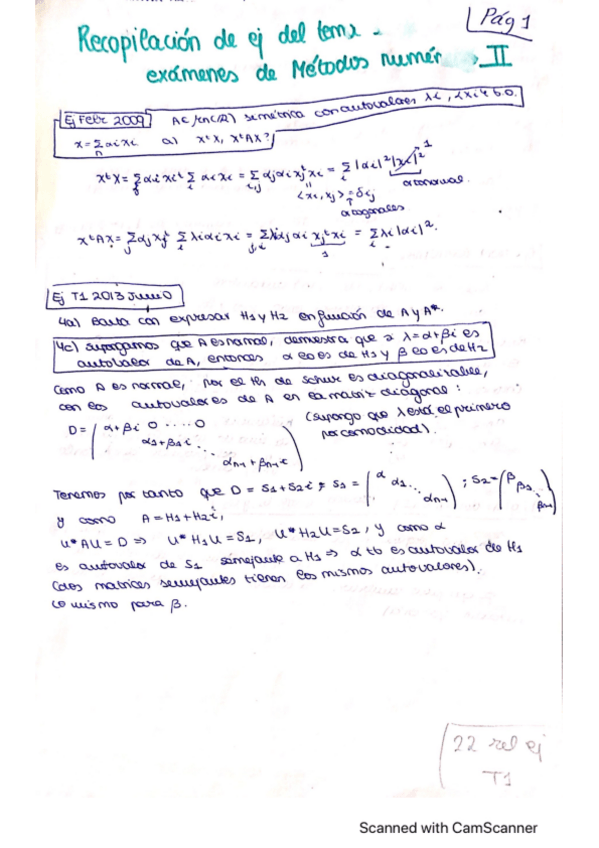 Pág 1
Recopilación de ej del tema -
exámenes de Métodos numér II
Ej Febr 2009 A∈ℳn(ℝ) simétrica con autovalores λi, {xi} b.o.
x = Σ αi xi a) x^t x, x^t A x?
x^t x = Σ αi xi^t Σ αi xi = Σ αj αi xj^t xi = Σ |αi|² |xi|² 1
i i,j i ortonormal.
<xi, xj> = δij
ortogonales
x^t A x = Σ αj xj^t Σ λi αi xi = Σ λi αj αi xj^t xi = Σ λi |αi|².
j i j,i 1 i
Ej T1 2013 Junio
4a) Basta con expresar H1 y H2 en función de A y A*.
4c) Supongamos que A es normal, demuestra que si λ=α+βi es
autovalor de A, entonces α lo es de H1 y β lo es de H2
Como A es normal, por el th de Schur es diagonalizable,
con los autovalores de A en la matriz diagonal:
D = ( α+βi 0 ···· 0 (supongo que λ está el primero
α1+β1i por comodidad).
αn-1+βn-1i )
Tenemos por tanto que D = S1+S2i, S1 = ( α α1 ... αn-1 ) ; S2 = ( β β1 ... βn-1 )
y como A = H1+H2i,
U*AU = D ⇒ U*H1U = S1, U*H2U = S2, y como α
es autovalor de S1 semejante a H1 ⇒ α tb es autovalor de H1
(dos matrices semejantes tienen los mismos autovalores).
Lo mismo para β.
22 rel ej
T1
Scanned with CamScanner